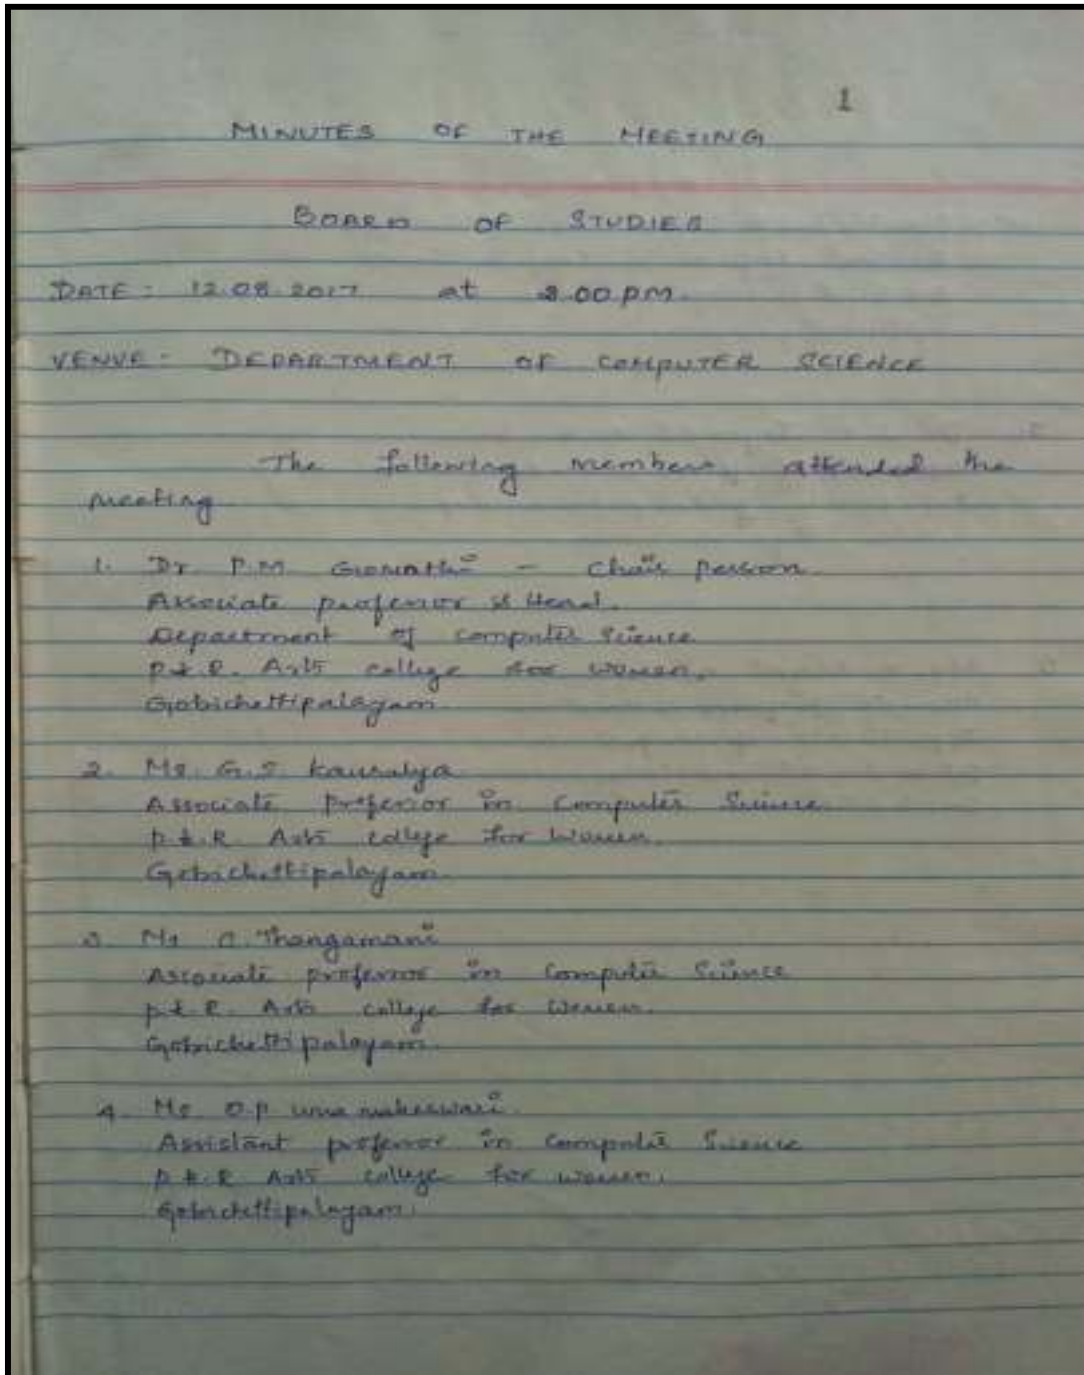 1
MINUTES OF THE MEETING
BOARD OF STUDIES
DATE: 12.08.2017 at 2.00 pm.
VENUE: DEPARTMENT OF COMPUTER SCIENCE
The following members attended the
meeting
1. Dr P.M Gomathi - Chair person
Associate professor & Head.
Department of computer Science
P.K.R. Arts college for women.
Gobichettipalayam
2. Ms. G.S. Kausalya
Associate Professor in Computer Science
P.K.R. Arts college for Women.
Gobichettipalayam.
3. Ms Thangamani
Associate professor in Computer Science
P.K.R. Arts college for Women.
Gobichettipalayam.
4. Ms. O.P uma maheswari.
Assistant professor in Computer Science
P.K.R Arts college for women.
Gobichettipalayam.